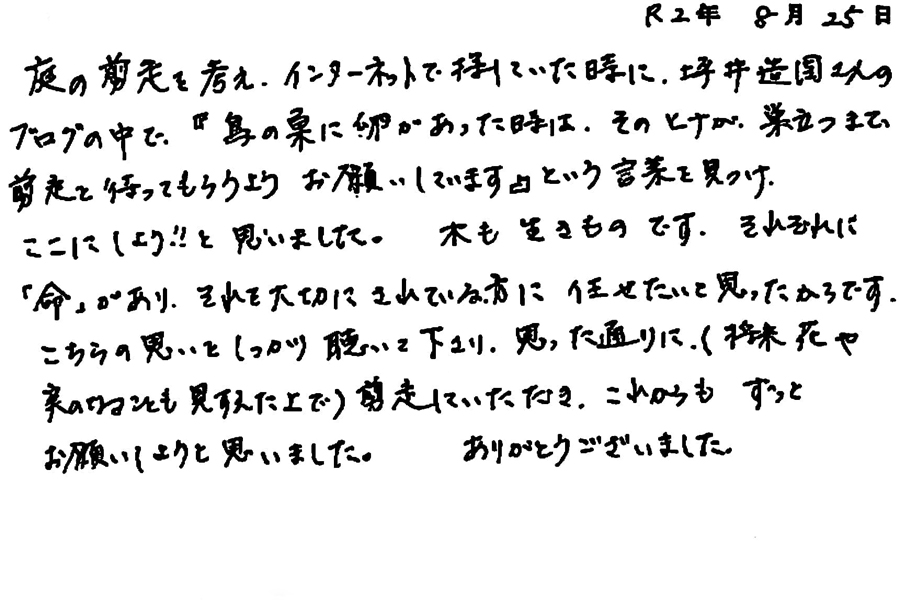 R2年 8月25日
庭の剪定を考え、インターネットで探していた時に、坪井造園さんの
ブログの中で、『鳥の巣に卵があった時は、そのヒナが、巣立つまで、
剪定を待ってもらうよう お願いしています』という言葉を見つけ、
ここにしよう!!と思いました。 木も生きものです。それぞれに
「命」があり、それを大切にされている方に 任せたいと思ったからです。
こちらの思いをしっかり聴いて下さり、思った通りに、(将来 花や
実のなることも見すえた上で)剪定していただき、これからも ずっと
お願いしようと思いました。 ありがとうございました。